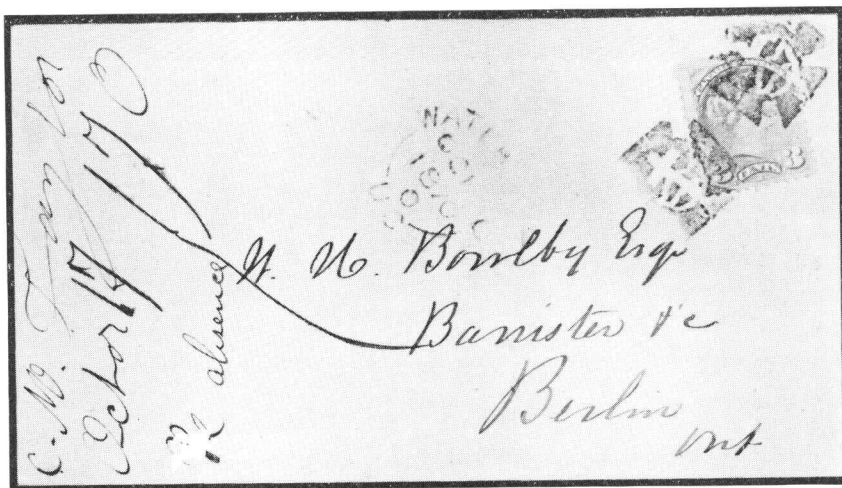 C. W. Taylor
Octbor 17/70
Re absence
W. H. Bowlby Esqr
Barrister &c
Berlin
Ont